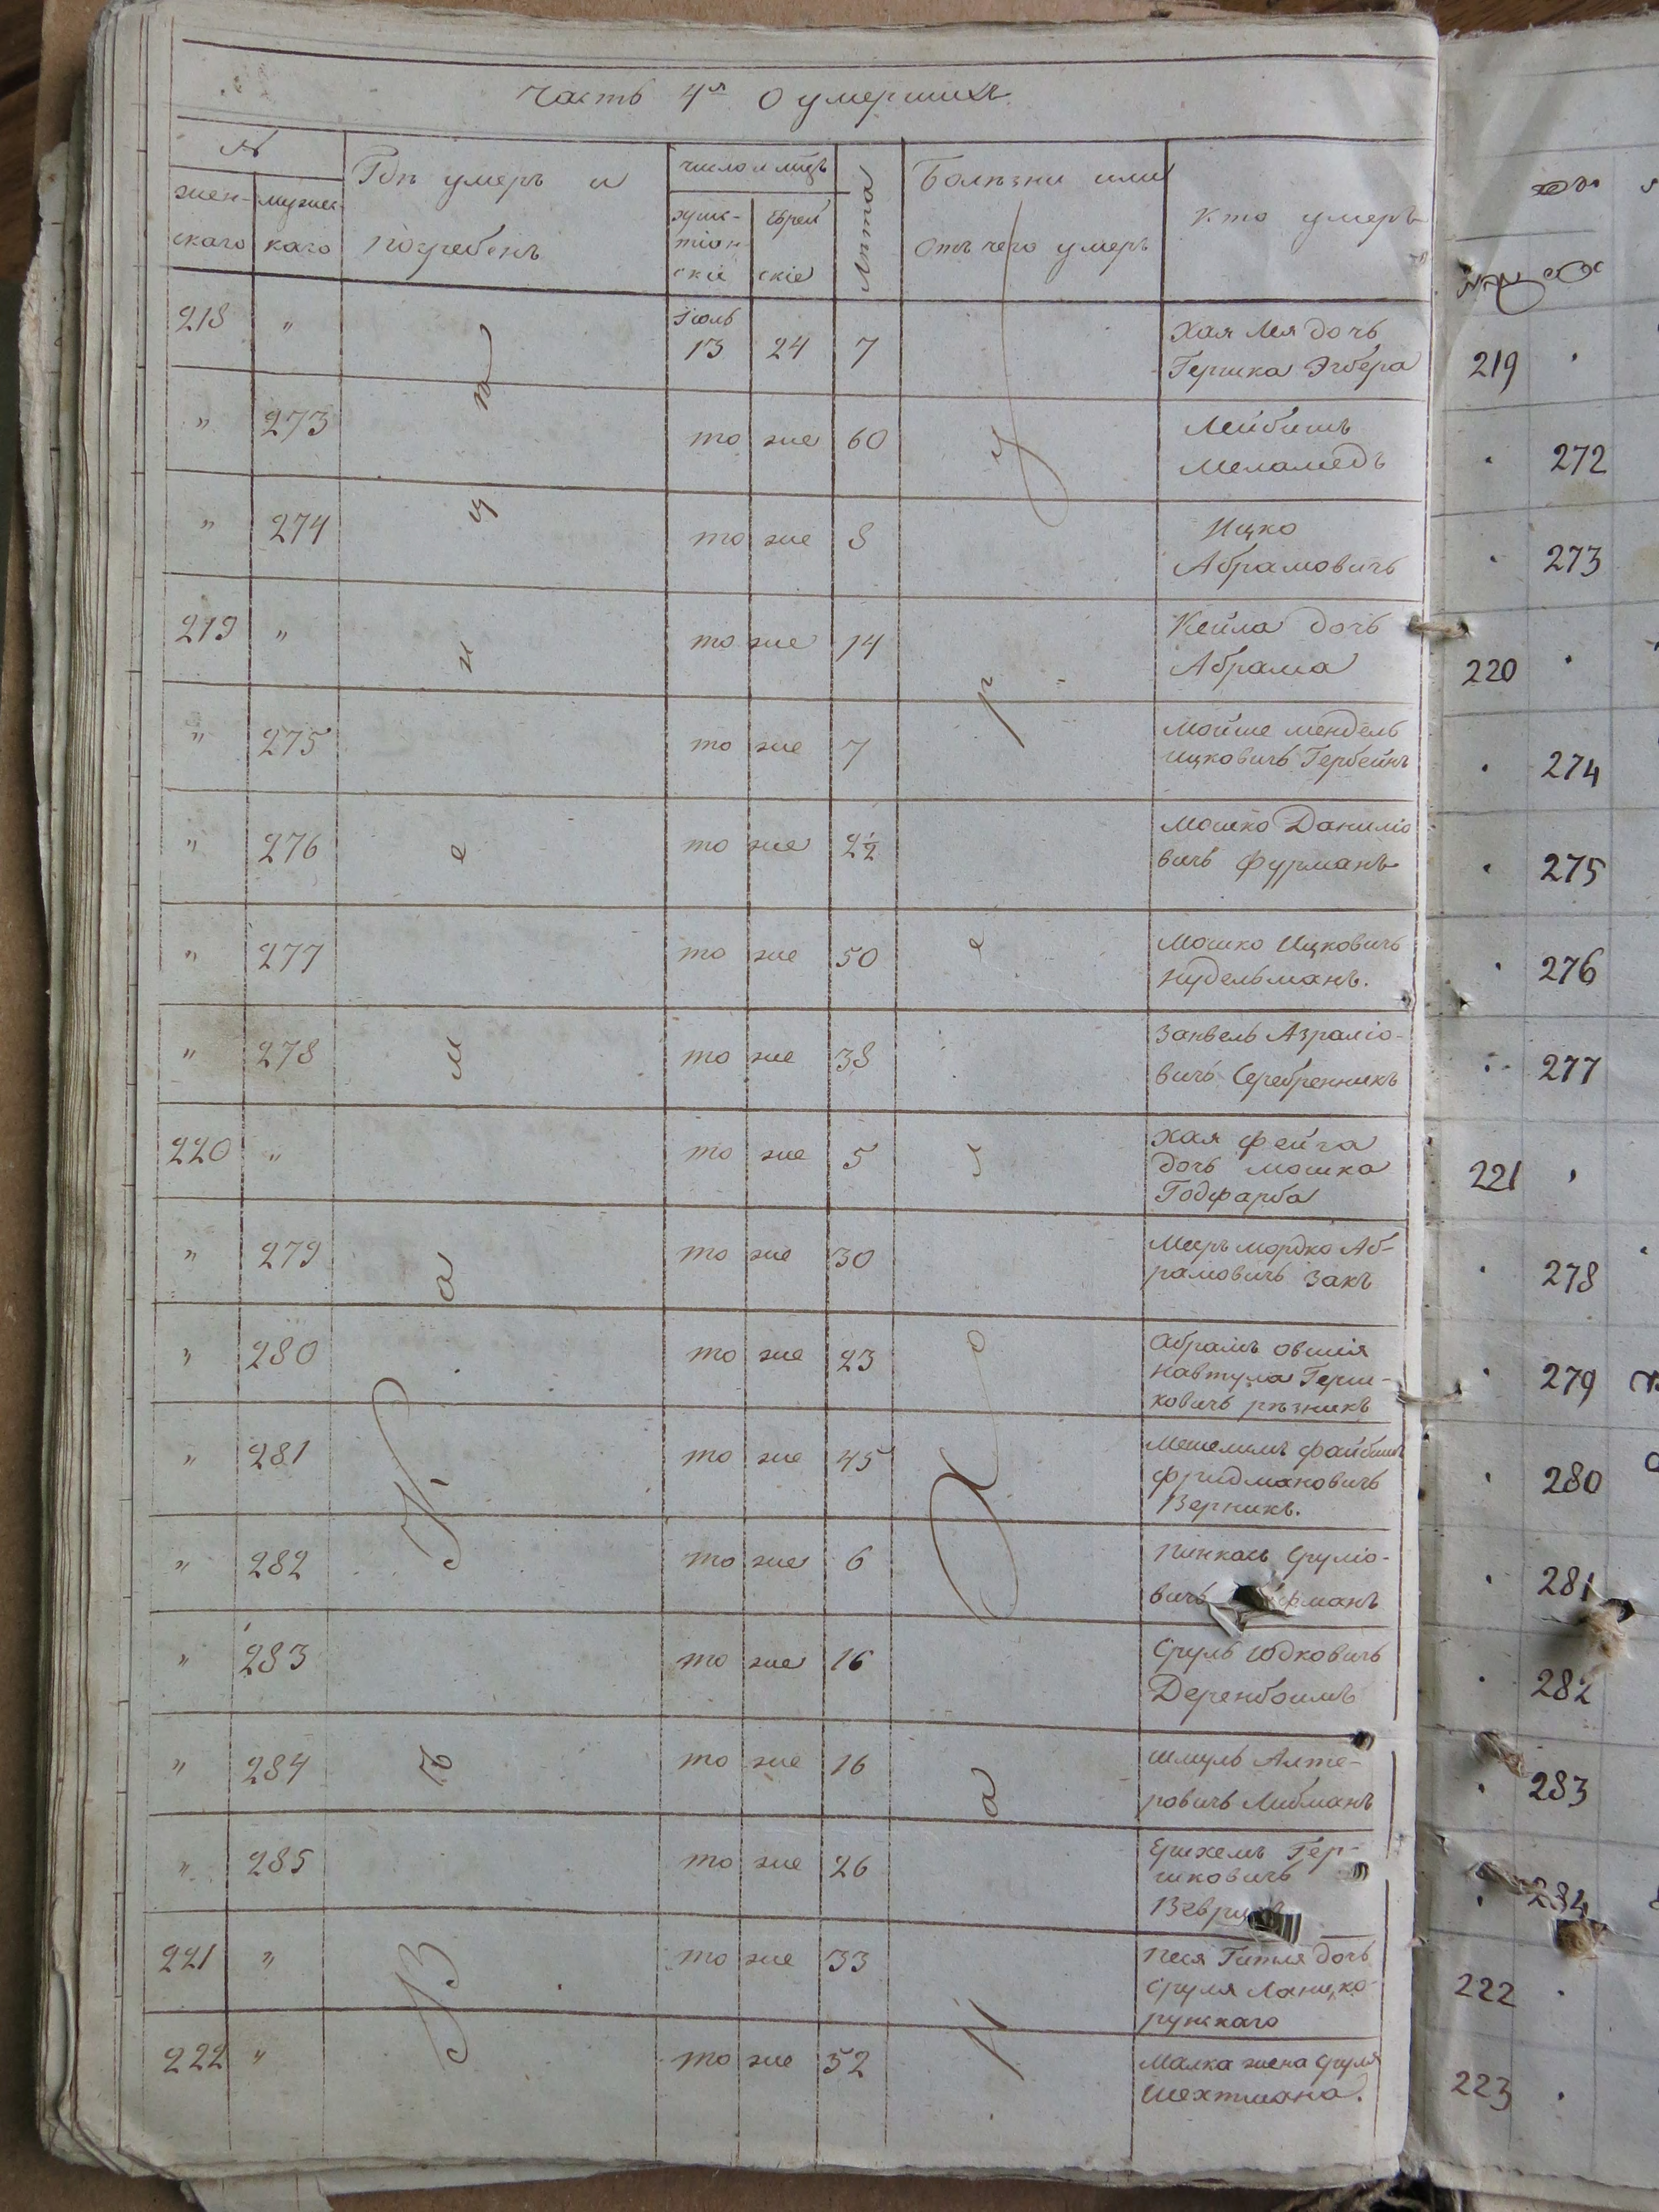 Часть 4я О умершихъ
№
Гдѣ умеръ и
число и мцъ
Лѣта
Болѣзни или
Кто умеръ
жен-
мужес-
погребенъ
христі-
Еврей
отъ чего умеръ
скаго
каго
скіе
скіе
Въ Каменцѣ
Холерою
218 " Іюль 13 24 7 Хая Лея дочь
Гершка
" 273 то же 60 Лейбишъ
Меламедъ
" 274 то же 8 Ицко
Абрамовичъ
219 " то же 14 Кейла дочь
Абрама
" 275 то же 7 Мойше Мендель
Ицковичъ Гербейнъ
" 276 то же 2½ Мошко Даниліо
вичъ Фурманъ
" 277 то же 50 Мошко Ицковичъ
Нудельманъ.
" 278 то же 38 Занвель Азраліо-
вичъ Серебренникъ
220 " то же 5 Хая Фейга
дочь Мошка
Годфарба
" 279 то же 30 Мееръ Мордко Аб-
рамовичъ Закъ
" 280 то же 23 Абрамъ Овшія
Навтула Герш-
ковичъ рѣзникъ
" 281 то же 45 Мешелимъ Файбиш
Фридмановичъ
Верникъ.
" 282 то же 6 Пинкась Сруліо-
вичъ
" 283 то же 16 Сруль Юдковичъ
Деренбоимъ
" 284 то же 16 Шмуль Алте-
ровичъ Либманъ
" 285 то же 26 Гер-
шковичъ
221 " то же 33 Песя Гитля дочь
Сруля Ланцко-
рунскаго
222 " то же 52 Малка жена Сруля
Шехтмана.
219
272
273
220
274
275
276
277
221
278
279
280
281
282
283
284
222
223